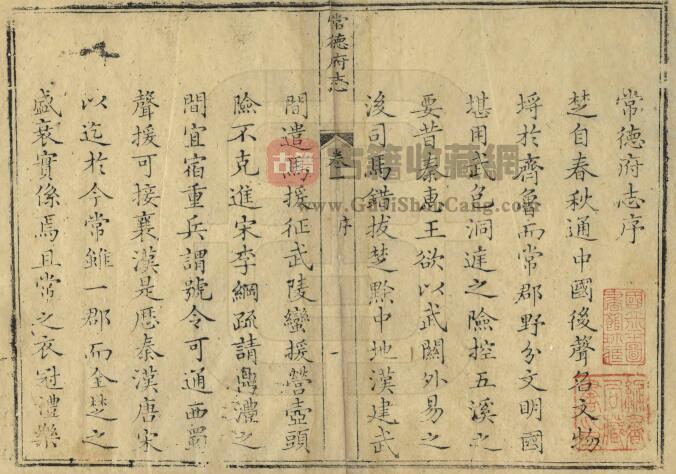 常德府志序
楚自春秋通中國後聲名文物
埒於齊魯而常郡野分文明國
堪用武邑洞庭之險控五溪之
要昔秦惠王欲以武關外易之
後司馬錯拔楚黔中地漢建武
常德府志
卷一
序
一
間遣馬援征武陵蠻援營壺頭
險不克進宋李綱疏請鼎澧之
間宜宿重兵謂號令可通西蜀
聲援可接襄漢是歷秦漢唐宋
以迄於今常雖一郡而全楚之
盛衰實係焉且常之衣冠禮樂
古籍
古籍收藏網
www.GuJiShouCang.com